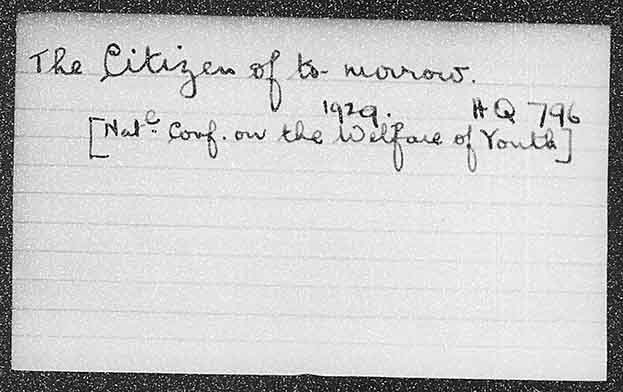 The Citizen of to-morrow.
1929. HQ 796
[Natl. Conf. on the Welfare of Youth]